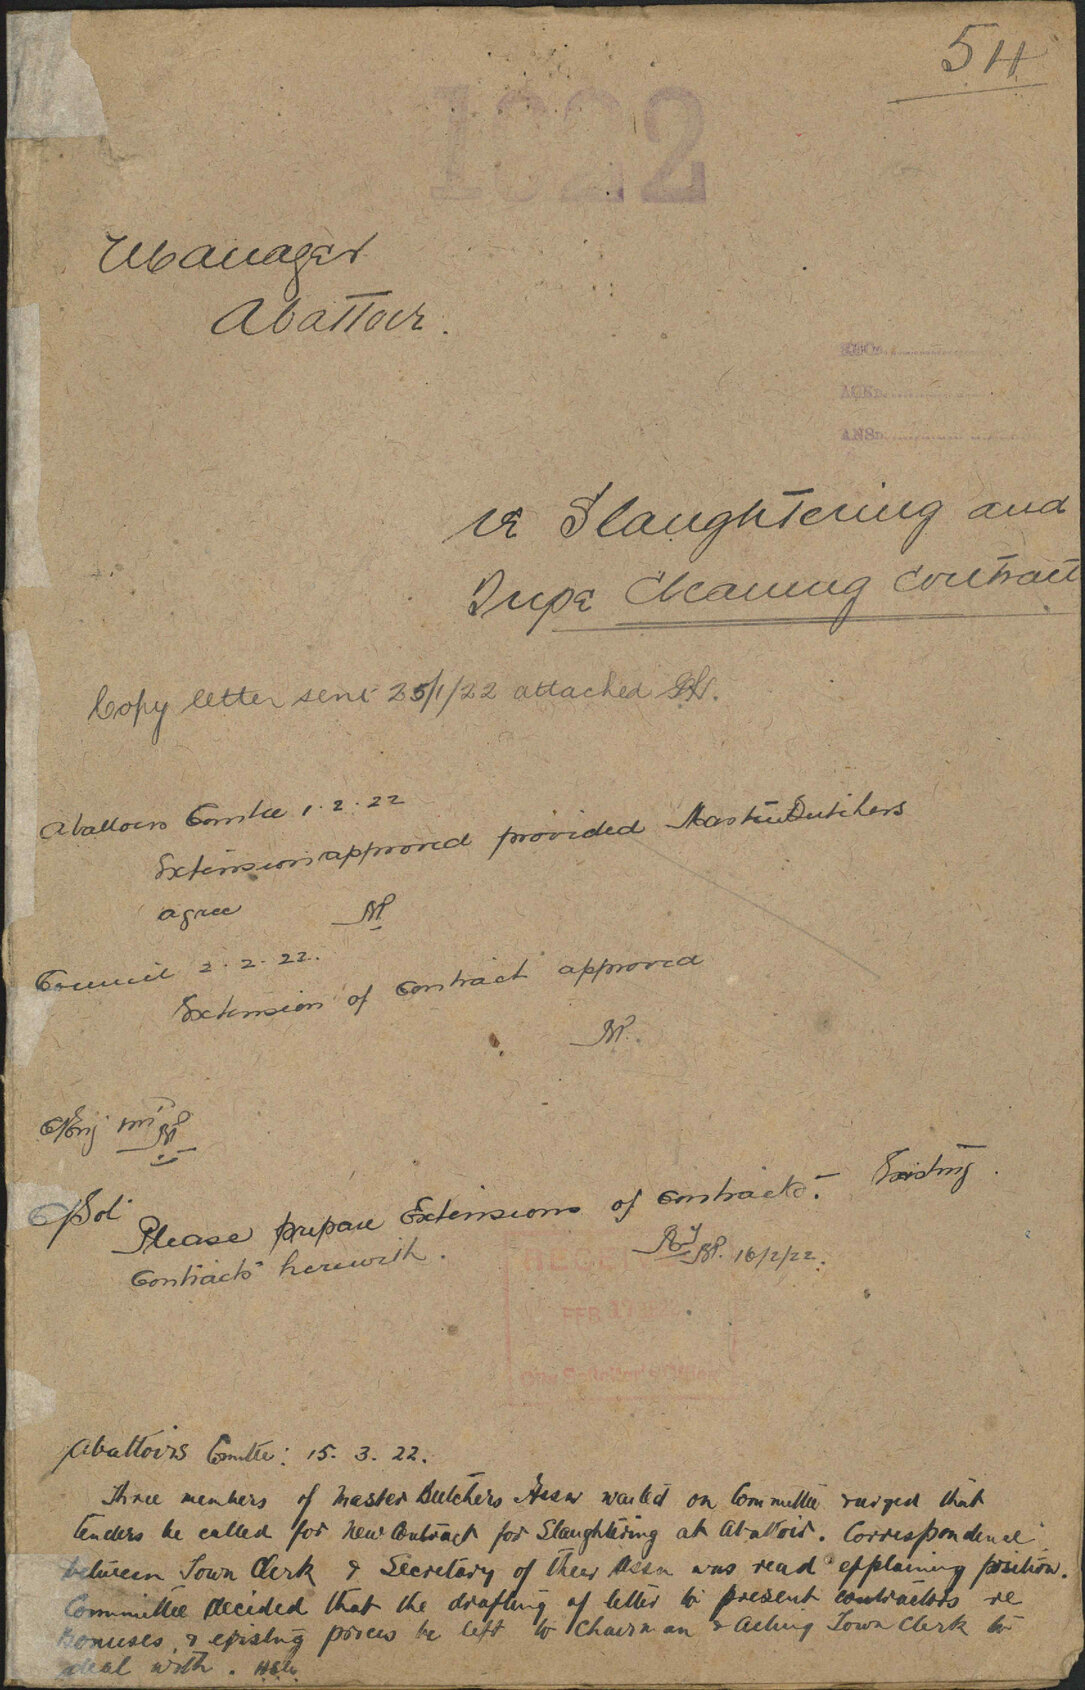 54
1922
Manager
Abattoir.
RECD.
ACKD.
ANSD.
re Slaughtering and
Tripe Cleaning Contract
Copy letter sent 25/1/22 attached
Abattoirs Comtee 1.2.22
Extension approved provided Master Butchers
agree
Council 2.2.22.
Extension of Contract approved
Please prepare Extensions of Contracts. Existing
Contracts herewith.
16/2/22.
RECEIVED
FEB 17 1922
City Solicitor's Office
Abattoirs Comttee: 15.3.22.
Three members of Master Butchers Assn waited on Committee & urged that
tenders be called for New Contract for Slaughtering at Abattoir. Correspondence
between Town Clerk & Secretary of their Assn was read explaining position.
Committee decided that the drafting of letter to present contractors re
Bonuses & existing prices be left to Chairman & Acting Town Clerk to
deal with.